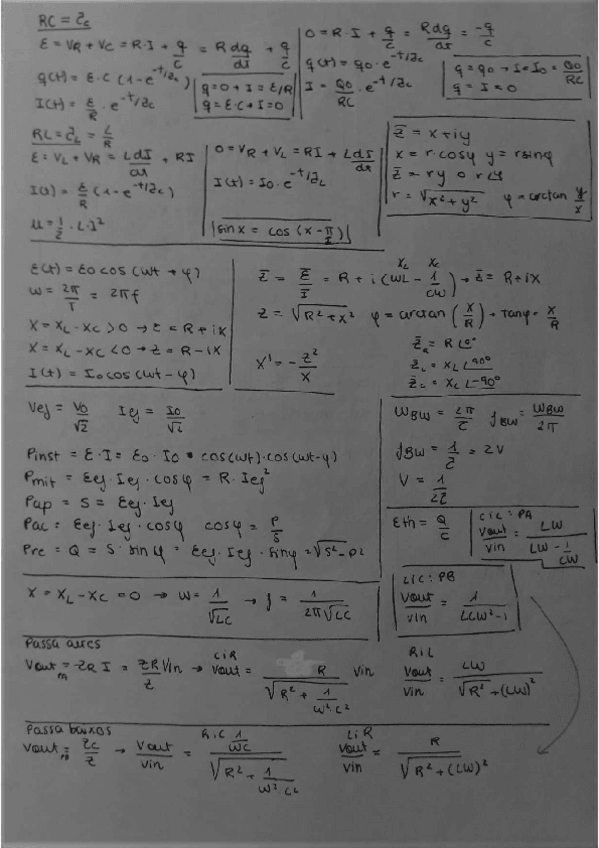 RC = ℤc
ε = VR + VC = R·I + q/c = R dq/dt + q/c
q(t) = ε·C (1-e^-t/ℤc)
I(t) = ε/R · e^-t/ℤc
q=0 → I = ε/R
q = ε·C → I=0
0 = R·I + q/c = R dq/dt = -q/c
q(t) = q0 · e^-t/ℤc
I = Q0/RC · e^-t/ℤc
q = q0 → I=I0 = Q0/RC
q = I = 0
RL = ℤL = L/R
ε = VL + VR = L dI/dt + RI
I(t) = ε/R (1-e^-t/ℤc)
u = 1/2 · L·I²
0 = VR + VL = RI + L dI/dt
I(t) = I0 · e^-t/ℤL
sin x = cos (x - π/2)
z̄ = x + iy
x = r·cosφ y = r sinφ
z̄ = rφ o r∠φ
r = √x² + y² φ = arctan y/x
ε(t) = ε0 cos (wt + φ)
w = 2π/T = 2πf
X = XL - XC > 0 → z = R + iX
X = XL - XC < 0 → z = R - iX
I(t) = I0 cos (wt - φ)
XL XC
z̄ = ε̄/Ī = R + i (wL - 1/cw) → z̄ = R + iX
z = √R² + X² φ = arctan (X/R) → tanφ = X/R
X' = - z²/X
z̄R = R∠0°
z̄L = XL∠90°
z̄C = XC∠-90°
Vef = V0/√2 Ief = I0/√2
Pinst = ε·I = ε0 · I0 · cos(wt)·cos(wt-φ)
Pmit = εef · Ief · cosφ = R·Ief²
Pap = S = εef · Ief
Pac = εef · Ief · cosφ cosφ = P/S
Pre = Q = S · sinφ = εef · Ief · sinφ = √S² - P²
WBW = 2π/ℤ fBW = WBW/2π
fBW = 1/ℤ = 2V
V = 1/2ℤ
εth = Q/C
C i L : PA
Vout/Vin = LW/LW - 1/CW
L i C : PB
Vout/Vin = 1/LCW²-1
X = XL - XC = 0 → W = 1/√LC → f = 1/2π√LC
Passa altes
Vout = zR I = zR Vin/z → C i R Vout = R/√R² + 1/W²C² Vin
R i L
Vout/Vin = LW/√R² + (LW)²
Passa baixos
Vout = zc/z → Vout/Vin = R i C 1/WC/√R² + 1/W²C²
L i R
Vout/Vin = R/√R² + (LW)²